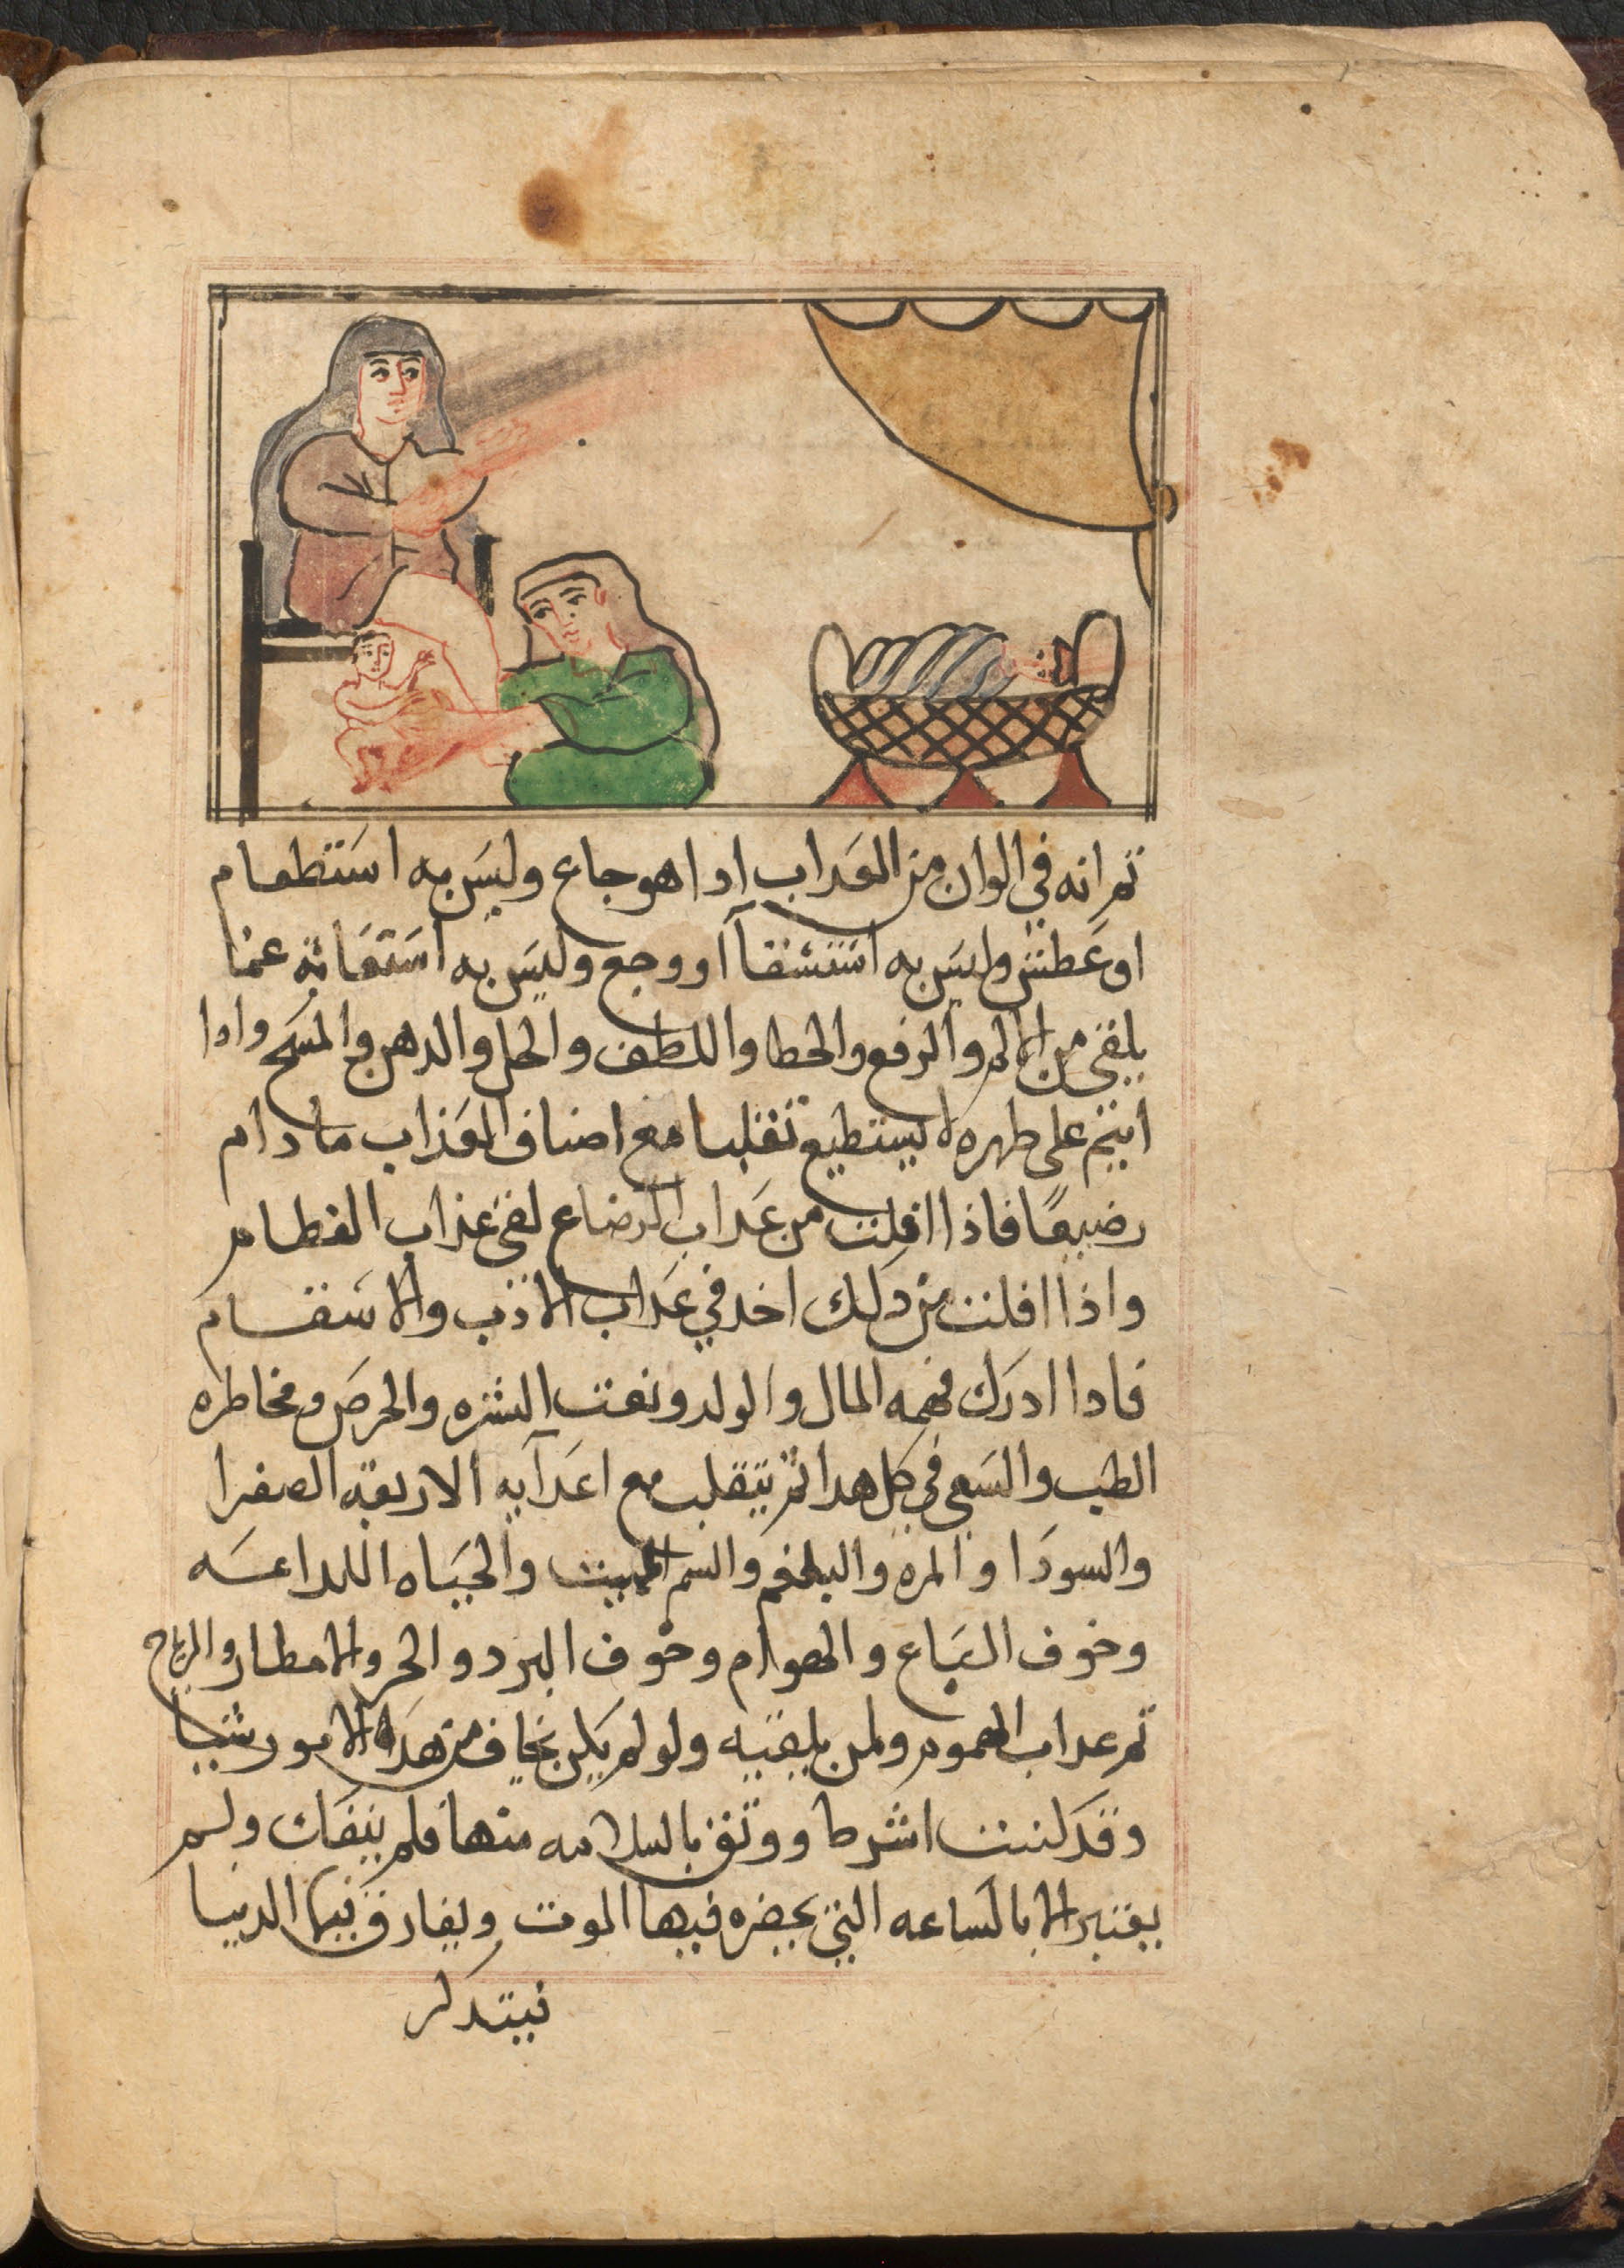 ثم انه في الوان من العداب ادا هو جاع وليس به استطعام
او عطش وليس به استشقا او وجع وليس به استغاثة عما
يلقى من الالم والرفع والحطا واللطف والحل والدهن والمسح وادا
انيم على طهره لا يستطيع تقلبا مع اصناف العذاب ما دام
رضيعًا فاذا افلت من عداب الرضاع لقى عذاب الفطام
واذا افلت من دلك اخد في عداب الاذب والاسقام
فادا ادرك فهمه المال والولد ونعت الشره والحرص ومخاطره
الطب والسعي في كل هدا ثم يتقلب مع اعدآيه الاربعة الصفرا
والسودا والمره والبلغم والسم المميت والحياه اللداعه
وخوف السباع والهوام وخوف البرد والحر والامطار والرياح
ثم عداب الهموم ولمن يلقيه ولو لم يكن يخاف من هده الامور شيا
وقد اشرط ووثق بالسلامه منها فلم ينفك ولم
يعتبر الا بالساعه التي يحضره فيها الموت ويفارق فيها الدنيا
فيتدكر